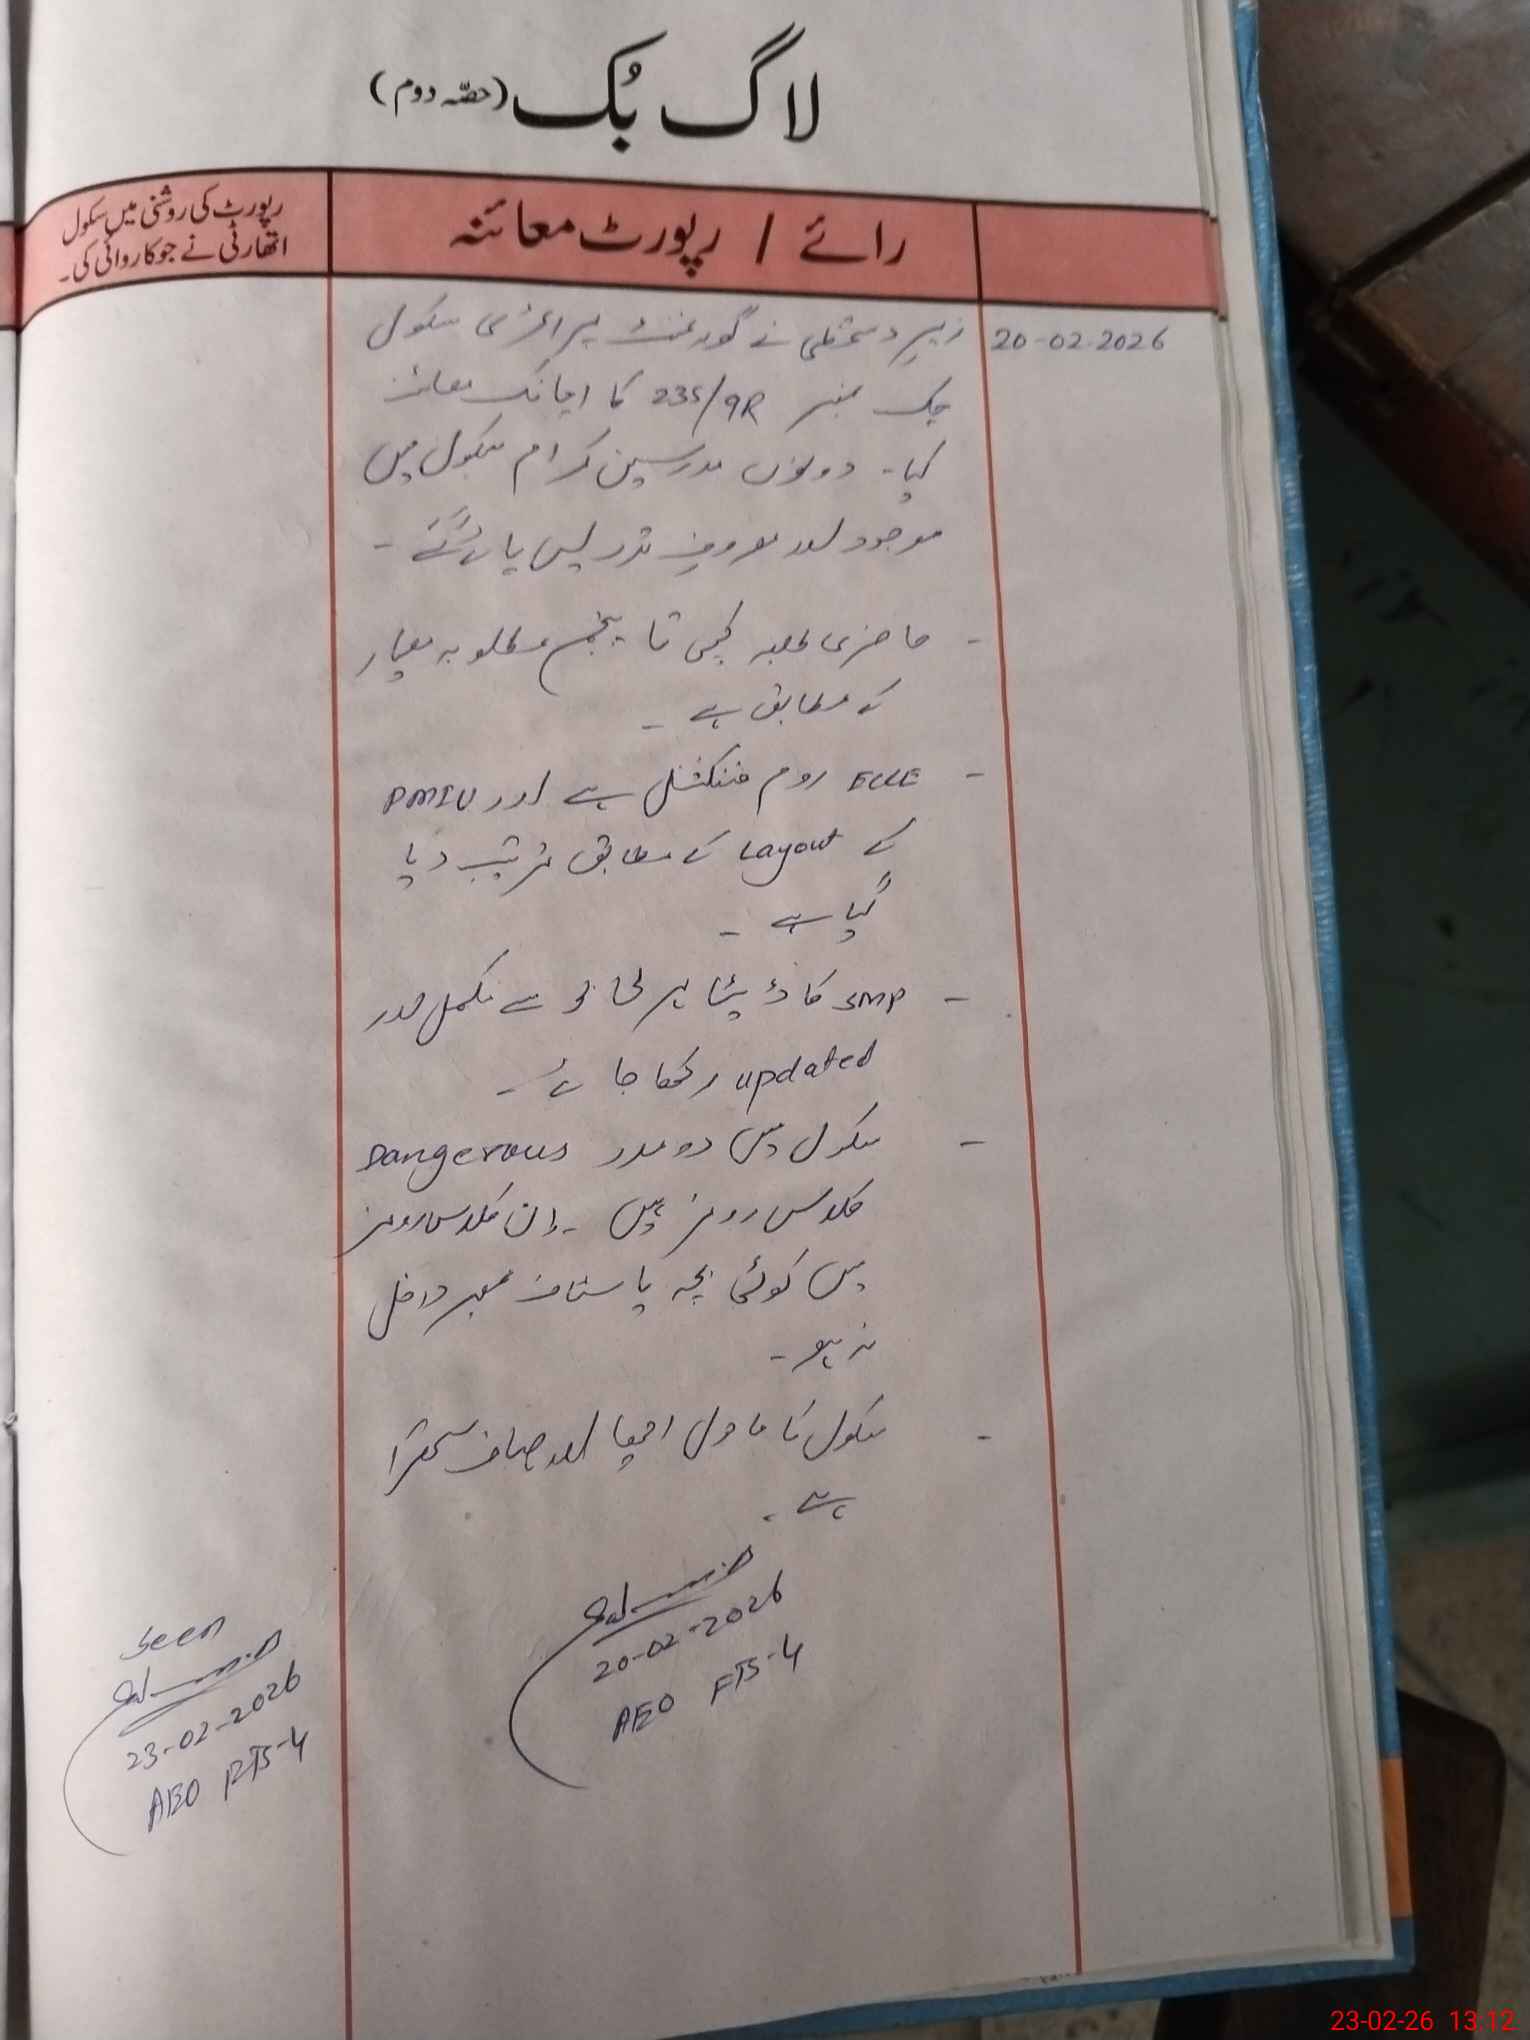 لاگ بُک (حصّہ دوم)
رائے / رپورٹ معائنہ
رپورٹ کی روشنی میں سکول
اتھارٹی نے جو کاروائی کی۔
20-02-2026
زیرِ دستخطی نے گورنمنٹ پرائمری سکول
چک نمبر 235/9R کا اچانک معائنہ
کیا۔ دونوں مدرسین کرام سکول میں
موجود اور مصروفِ تدریس پائے گئے۔
- حاضری طلبہ کچی تا پنجم مطلوبہ معیار
کے مطابق ہے۔
- ECCE روم فنکشنل ہے اور PMIU
کے Layout کے مطابق ترتیب دیا
گیا ہے۔
- SMP کا ڈیٹا ہر لحاظ سے مکمل اور
updated رکھا جائے۔
- سکول میں دو عدد Dangerous
کلاس رومز ہیں۔ ان کلاس رومز
میں کوئی بچہ یا سٹاف ممبر داخل
نہ ہو۔
- سکول کا ماحول اچھا اور صاف ستھرا
ہے۔
20-02-2026
AEO FTS-4
Seen
23-02-2026
AEO FTS-4
23-02-26 13:12